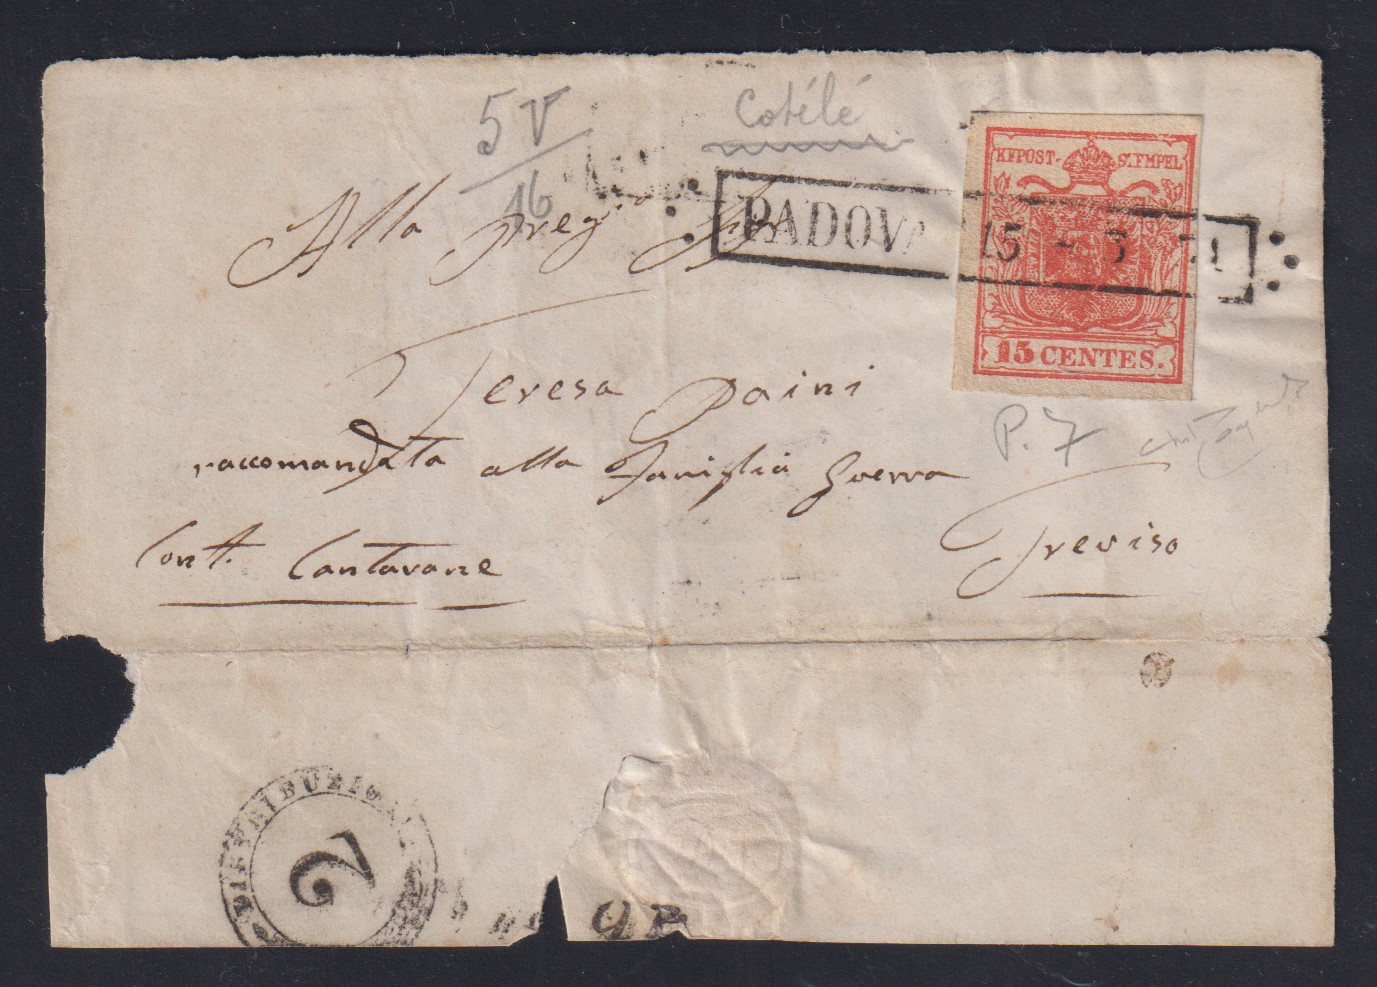 Cotélé
5 V
16
KKPOST-STEMPEL
PADOVA 15 - 3
15 CENTES.
Alla Preg. Sig.
Teresa Daini
P. 7
raccomandata alla Famiglia Guerra
Treviso
Cont. Cantarane
DISTRIBUZIONE
2